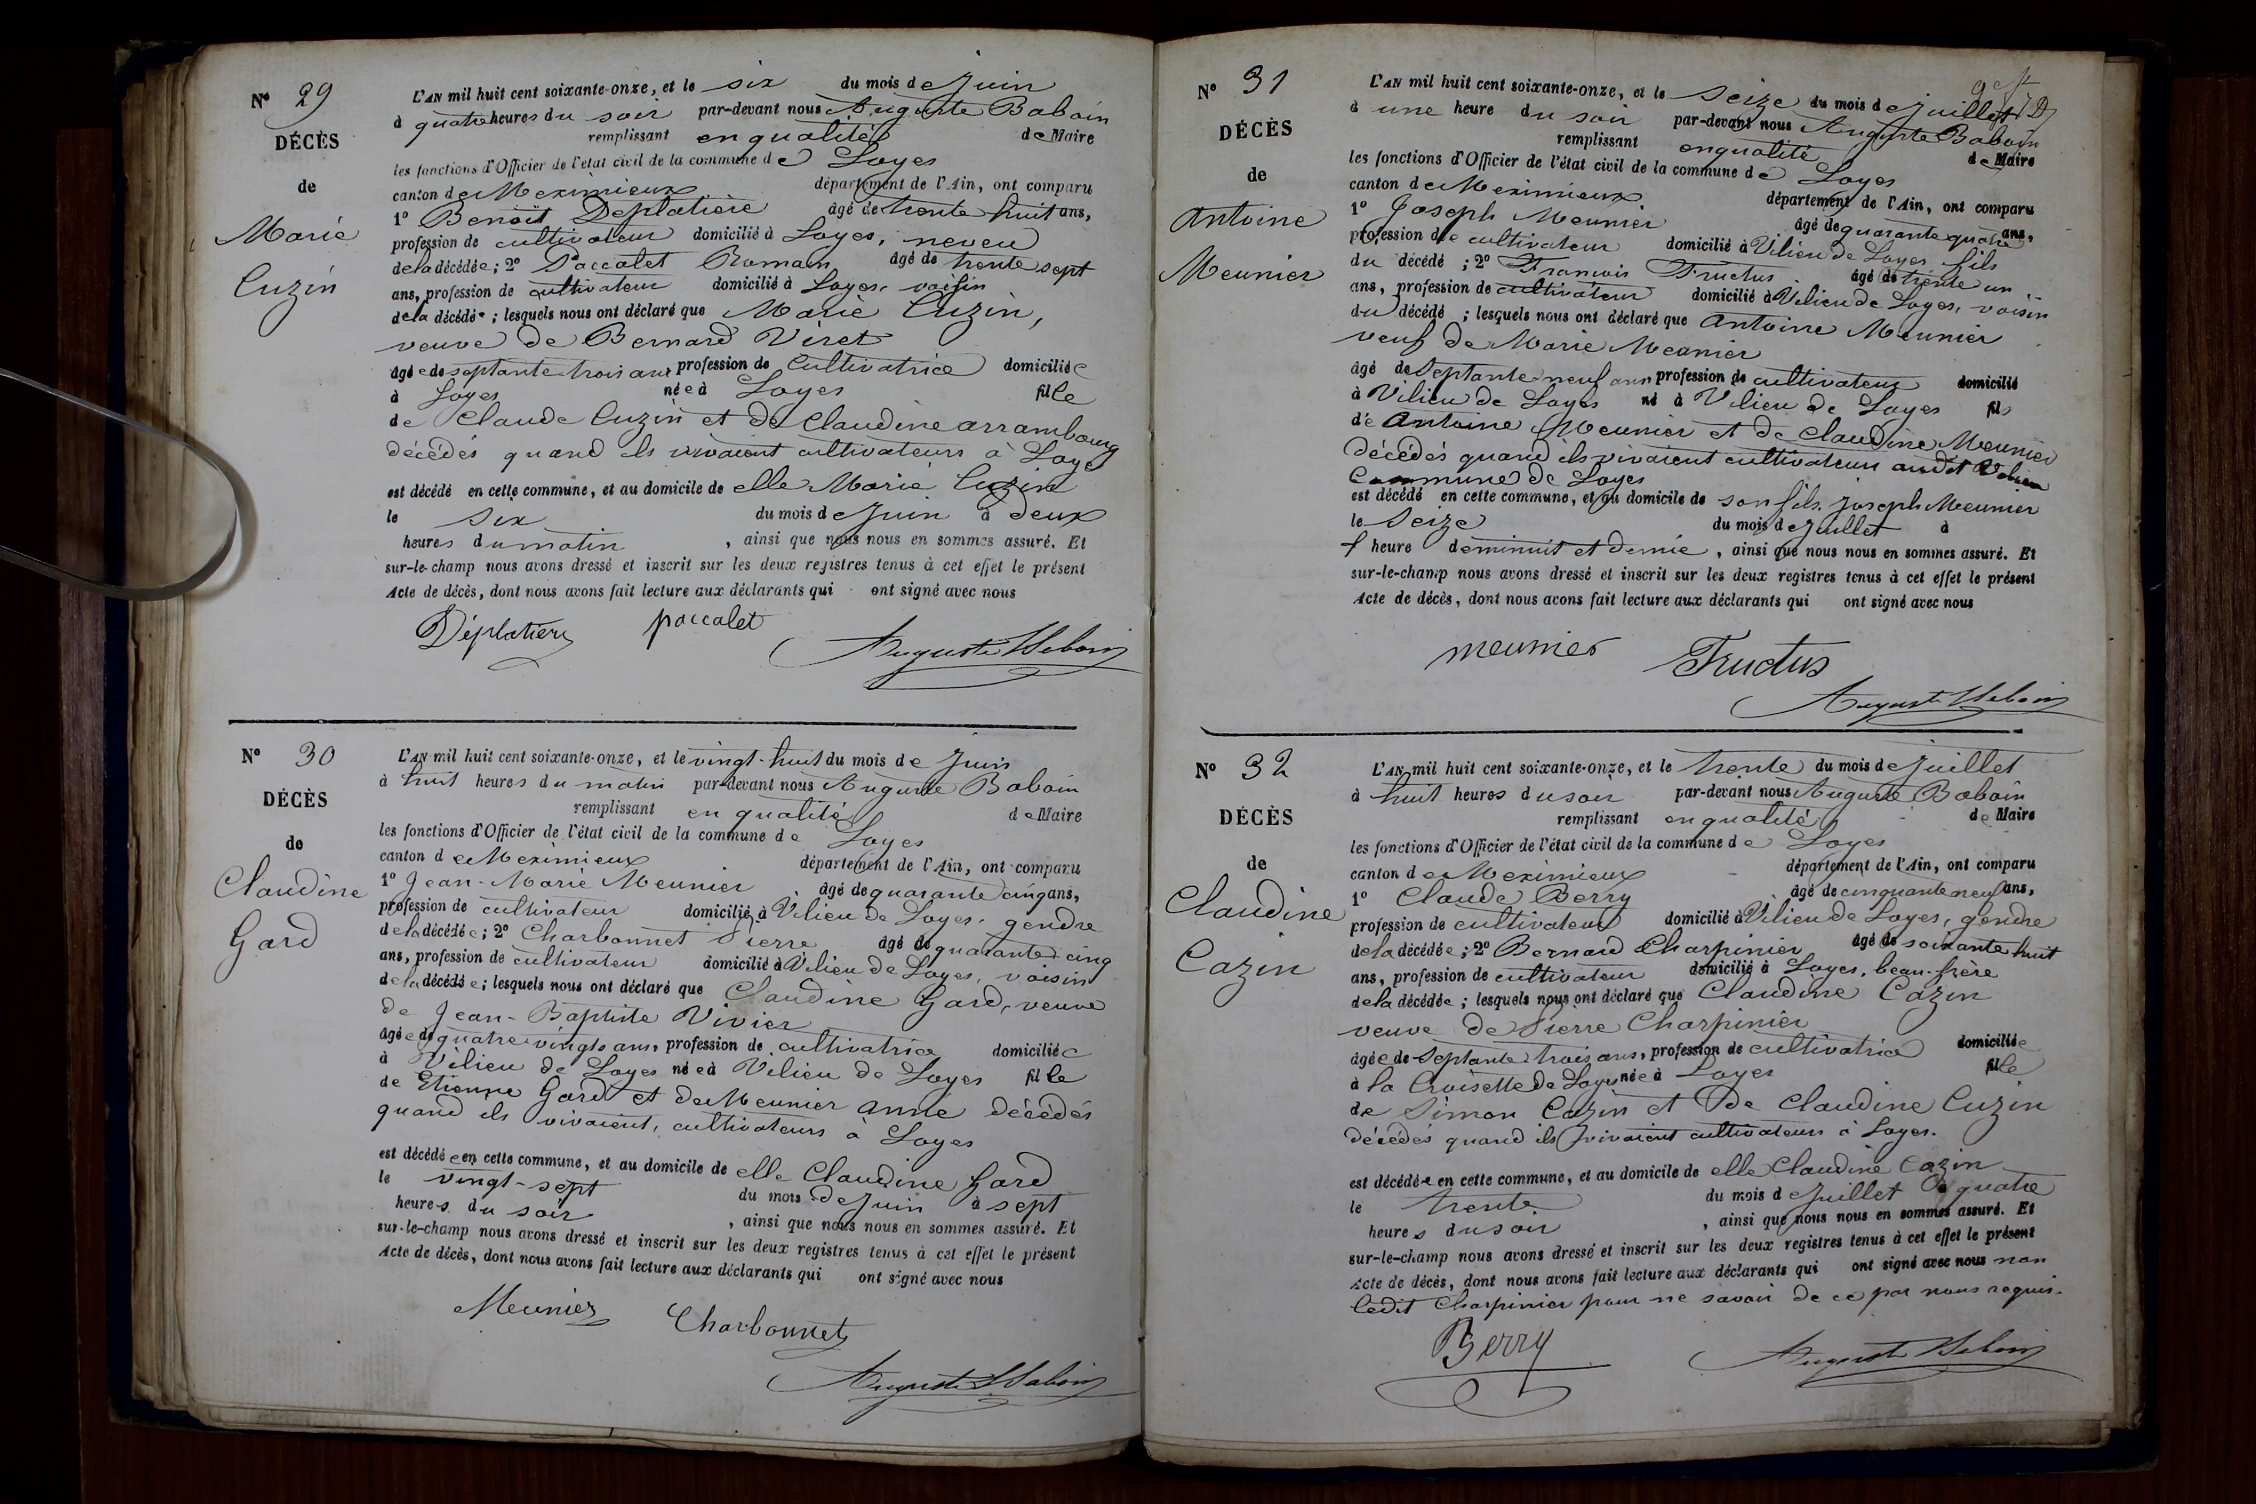 N° 29
DÉCÈS
de
Marie
Cuzin
L'AN mil huit cent soixante-onze, et le six du mois de Juin
à quatre heures du soir par-devant nous Auguste Baboin
remplissant en qualité de Maire
les fonctions d'Officier de l'état civil de la commune de Loyes
canton de Meximieux département de l'Ain, ont comparu
1° Benoît Déplatière âgé de trente huit ans,
profession de cultivateur domicilié à Loyes, neveu
de la décédée; 2° Paccalet Romain âgé de trente sept
ans, profession de cultivateur domicilié à Loyes, voisin
de la décédée; lesquels nous ont déclaré que Marie Cuzin,
veuve de Bernard Viret
âgée de septante trois ans profession de cultivatrice domiciliée
à Loyes née à Loyes fille
de Claude Cuzin et de Claudine arrambourg
décédés quand ils vivaient cultivateurs à Loyes
est décédé en cette commune, et au domicile de elle Marie Cuzin
le six du mois de Juin à deux
heures du matin, ainsi que nous nous en sommes assuré. Et
sur-le-champ nous avons dressé et inscrit sur les deux registres tenus à cet effet le présent
Acte de décès, dont nous avons fait lecture aux déclarants qui ont signé avec nous
Déplatière paccalet
Auguste Baboin
N° 30
DÉCÈS
de
Claudine
Gard
L'AN mil huit cent soixante-onze, et le vingt-huit du mois de Juin
à huit heures du matin par-devant nous Auguste Baboin
remplissant en qualité de Maire
les fonctions d'Officier de l'état civil de la commune de Loyes
canton de Meximieux département de l'Ain, ont comparu
1° Jean-Marie Meunier âgé de quarante cinq ans,
profession de cultivateur domicilié à Vilieu de Loyes, gendre
de la décédée; 2° Charbonnet Pierre âgé de quarante cinq
ans, profession de cultivateur domicilié à Vilieu de Loyes, voisin
de la décédée; lesquels nous ont déclaré que Claudine Gard, veuve
de Jean-Baptiste Vivier
âgée de quatre-vingts ans, profession de cultivatrice domiciliée
à Vilieu de Loyes née à Vilieu de Loyes fille
de Etienne Gard et de Meunier anne décédés
quand ils vivaient, cultivateurs à Loyes
est décédée en cette commune, et au domicile de elle Claudine Gard
le vingt-sept du mois de Juin à sept
heures du soir, ainsi que nous nous en sommes assuré. Et
sur-le-champ nous avons dressé et inscrit sur les deux registres tenus à cet effet le présent
Acte de décès, dont nous avons fait lecture aux déclarants qui ont signé avec nous
Meunier Charbonnet
Auguste Baboin
N° 31
DÉCÈS
de
Antoine
Meunier
L'AN mil huit cent soixante-onze, et le seize du mois de Juillet
à une heure du soir par-devant nous Auguste Baboin
remplissant en qualité de Maire
les fonctions d'Officier de l'état civil de la commune de Loyes
canton de Meximieux département de l'Ain, ont comparu
1° Joseph Meunier âgé de quarante quatre ans,
profession de cultivateur domicilié à Vilieu de Loyes fils
du décédé; 2° François Fructus âgé de trente un
ans, profession de cultivateur domicilié à Vilieu de Loyes, voisin
du décédé; lesquels nous ont déclaré que Antoine Meunier
veuf de Marie Meunier
âgé de Septante neuf ans profession de cultivateur domicilié
à Vilieu de Loyes né à Vilieu de Loyes fils
de Antoine Meunier et de Claudine Meunier
décédés quand ils vivaient cultivateurs audit Vilieu
Commune de Loyes
est décédé en cette commune, et au domicile de son fils, Joseph Meunier
le seize du mois de Juillet à
heure de minuit et demie, ainsi que nous nous en sommes assuré. Et
sur-le-champ nous avons dressé et inscrit sur les deux registres tenus à cet effet le présent
Acte de décès, dont nous avons fait lecture aux déclarants qui ont signé avec nous
meunier Fructus
Auguste Baboin
N° 32
DÉCÈS
de
Claudine
Cazin
L'AN mil huit cent soixante-onze, et le trente du mois de Juillet
à huit heures du soir par-devant nous Auguste Baboin
remplissant en qualité de Maire
les fonctions d'Officier de l'état civil de la commune de Loyes
canton de Meximieux département de l'Ain, ont comparu
1° Claude Berry âgé de cinquante neuf ans,
profession de cultivateur domicilié à Vilieu de Loyes, gendre
de la décédée; 2° Bernard Charpinier âgé de soixante huit
ans, profession de cultivateur domicilié à Loyes, beau-frère
de la décédée; lesquels nous ont déclaré que Claudine Cazin
veuve de Pierre Charpinier
âgée de Septante trois ans, profession de cultivatrice domiciliée
à la Croisette de Loyes née à Loyes fille
de Simon Cazin et de Claudine Cuzin
décédés quand ils vivaient cultivateurs à Loyes.
est décédée en cette commune, et au domicile de elle Claudine Cazin
le trente du mois de Juillet à quatre
heures du soir, ainsi que nous nous en sommes assuré. Et
sur-le-champ nous avons dressé et inscrit sur les deux registres tenus à cet effet le présent
Acte de décès, dont nous avons fait lecture aux déclarants qui ont signé avec nous non
ledit Charpinier pour ne savoir de ce par nous requis.
Berry
Auguste Baboin